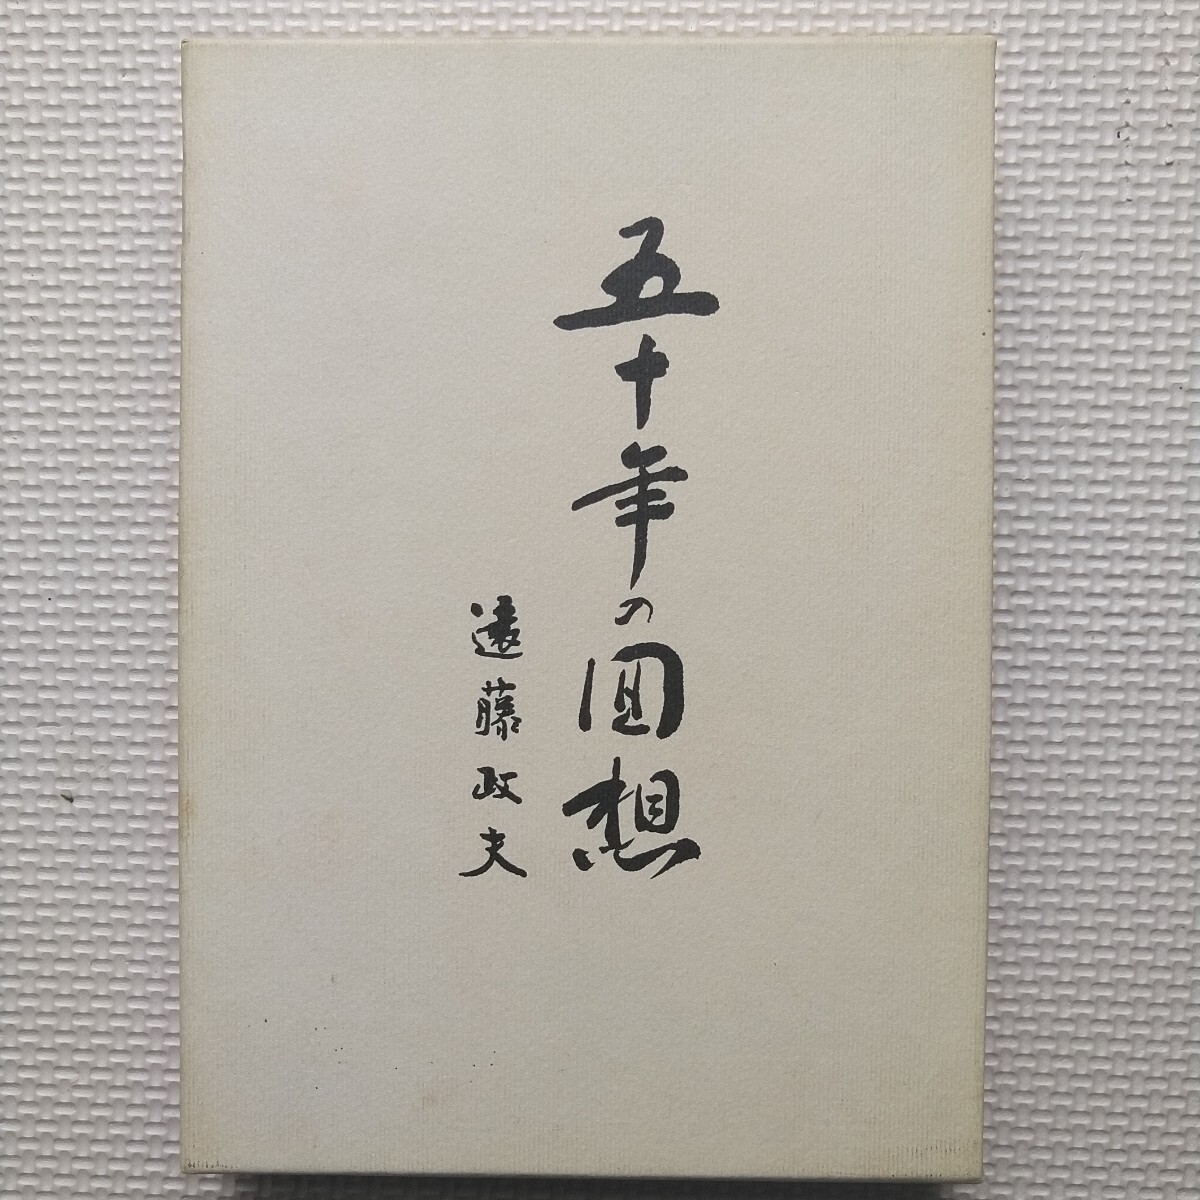 五十年の回想
遠藤政夫